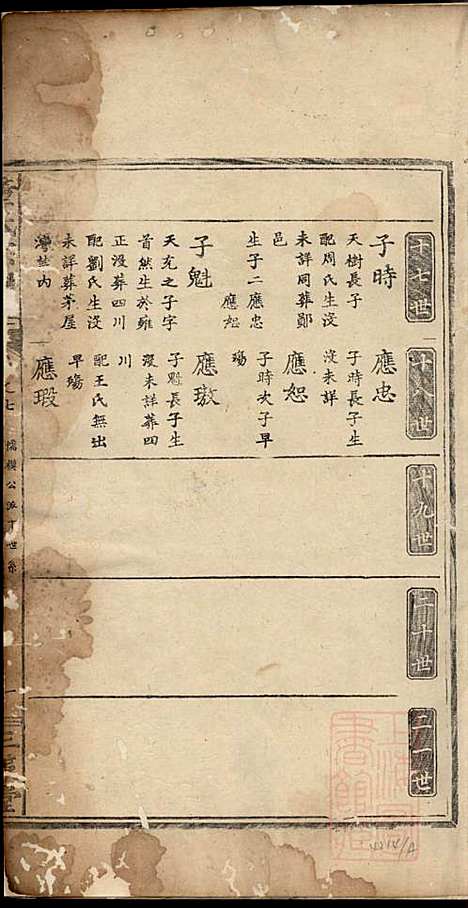 十七世
子時
天樹長子
配周氏生沒
未詳同葬鄖
邑
生子二應忠
應恕
子魁
天充之子字
首然生於雍
正沒葬四川
配劉氏生沒
未詳葬茅屋
灣
内
十八世
應忠
子時長子生
沒未詳
應恕
子時次子早
殤
應璈
子魁長子生
沒未詳葬四
川
配王氏無出
早殤
應瑕
十九世
二十世
二一世
公派下世系
一
三
上海
書館
4214/A